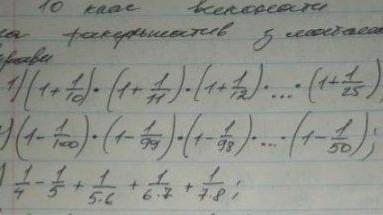 10 клас виконати
на з математ
вправи
1) (1+1/10)·(1+1/11)·(1+1/12)·...·(1+1/25)
2) (1-1/100)·(1-1/99)·(1-1/98)·...·(1-1/50);
) 1/4-1/5+1/5·6+1/6·7+1/7·8;